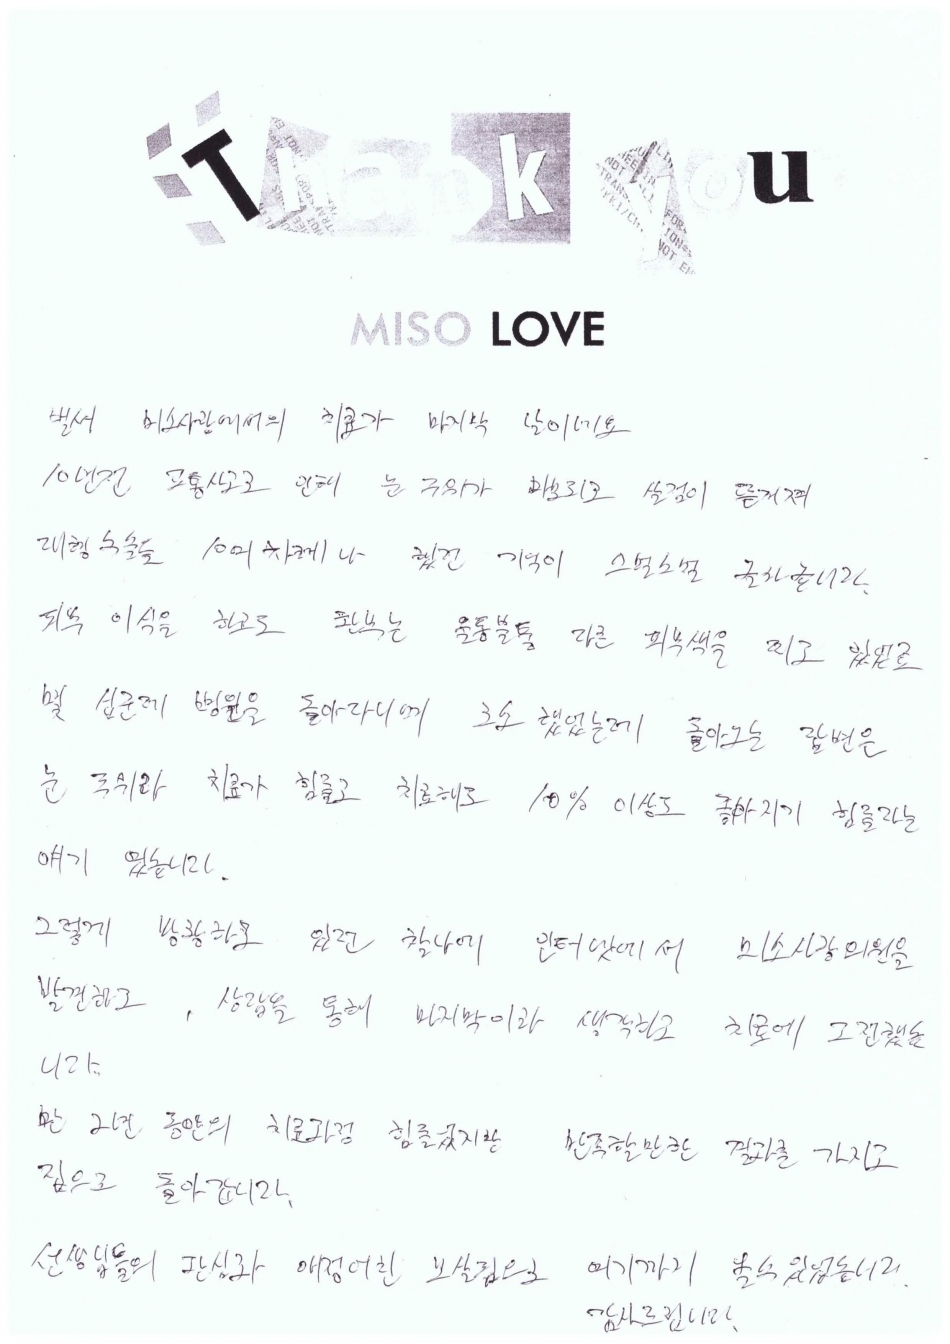 Thank you
MISO LOVE
벌써 미소사랑에서의 치료가 마지막 날이네요
10년전 교통사고로 인해 눈 주위가 피부 살점이 뜯겨져
대형수술을 10여 차례나 했던 기억이
피부 이식을 하고도 울퉁불퉁 다른 피부색을 띄고 있었고
몇 십군데 병원을 돌아다니며 했었는데 돌아오는 답변은
눈 주위라 치료가 힘들고 치료해도 10% 이상도 좋아지기 힘들다는
얘기 였습니다.
그렇게 방황하고 있던 찰나에 인터넷에서 미소사랑의원을
발견하고, 상담을 통해 마지막이라 생각하고 치료에 도전했습
니다.
만 2년 동안의 치료과정 힘들었지만 만족할만한 결과를 가지고
집으로 돌아갑니다.
선생님들의 관심과 애정어린 보살핌으로 여기까지 올수 있었습니다.
감사드립니다.